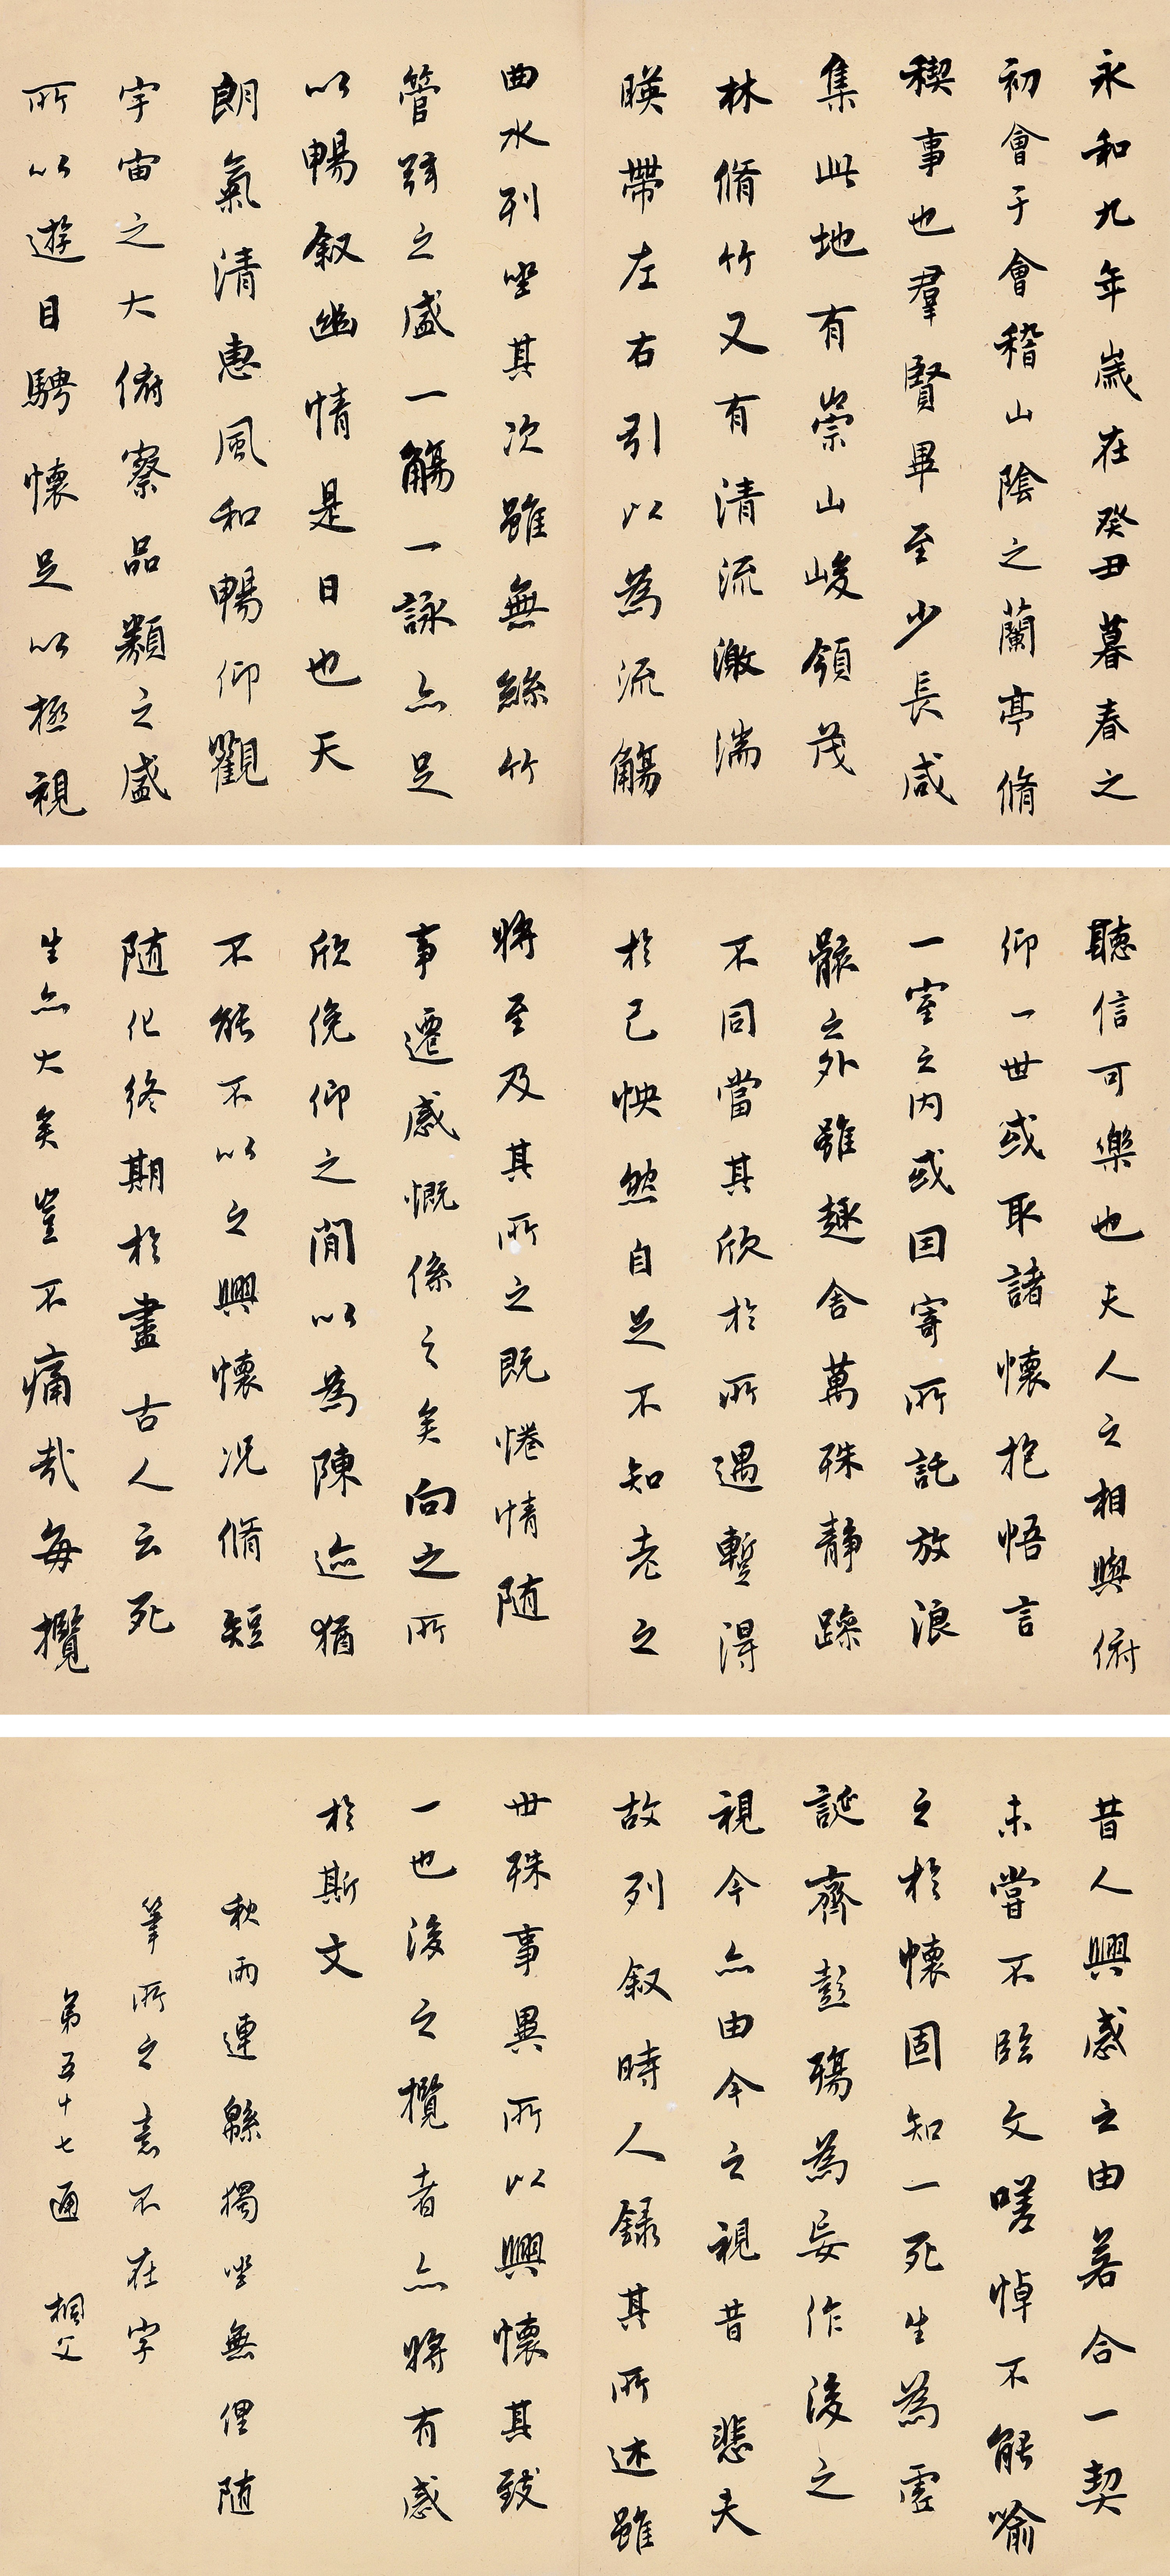 永和九年歲在癸丑暮春之
初會于會稽山陰之蘭亭脩
稧事也羣賢畢至少長咸
集此地有崇山峻領茂
林脩竹又有清流激湍
暎帶左右引以為流觴
曲水列坐其次雖無絲竹
管絃之盛一觴一詠亦足
以暢叙幽情是日也天
朗氣清惠風和暢仰觀
宇宙之大俯察品類之盛
所以遊目騁懷足以極視
聽信可樂也夫人之相與俯
仰一世或取諸懷抱悟言
一室之內或因寄所託放浪
形骸之外雖趣舍萬殊静躁
不同當其欣於所遇暫得
於己怏然自足不知老之
將至及其所之既惓情随
事遷感慨係之矣向之所
欣俛仰之間以為陳迹猶
不能不以之興懷况脩短
随化終期於盡古人云死
生亦大矣豈不痛哉每攬
昔人興感之由若合一契
未嘗不臨文嗟悼不能喻
之於懷固知一死生為虛
誕齊彭殤為妄作後之
視今亦由今之視昔悲夫
故列叙時人録其所述雖
世殊事異所以興懷其致
一也後之攬者亦將有感
於斯文
秋雨連緜獨坐無俚随
筆所之意不在字
第五十七通 桐父